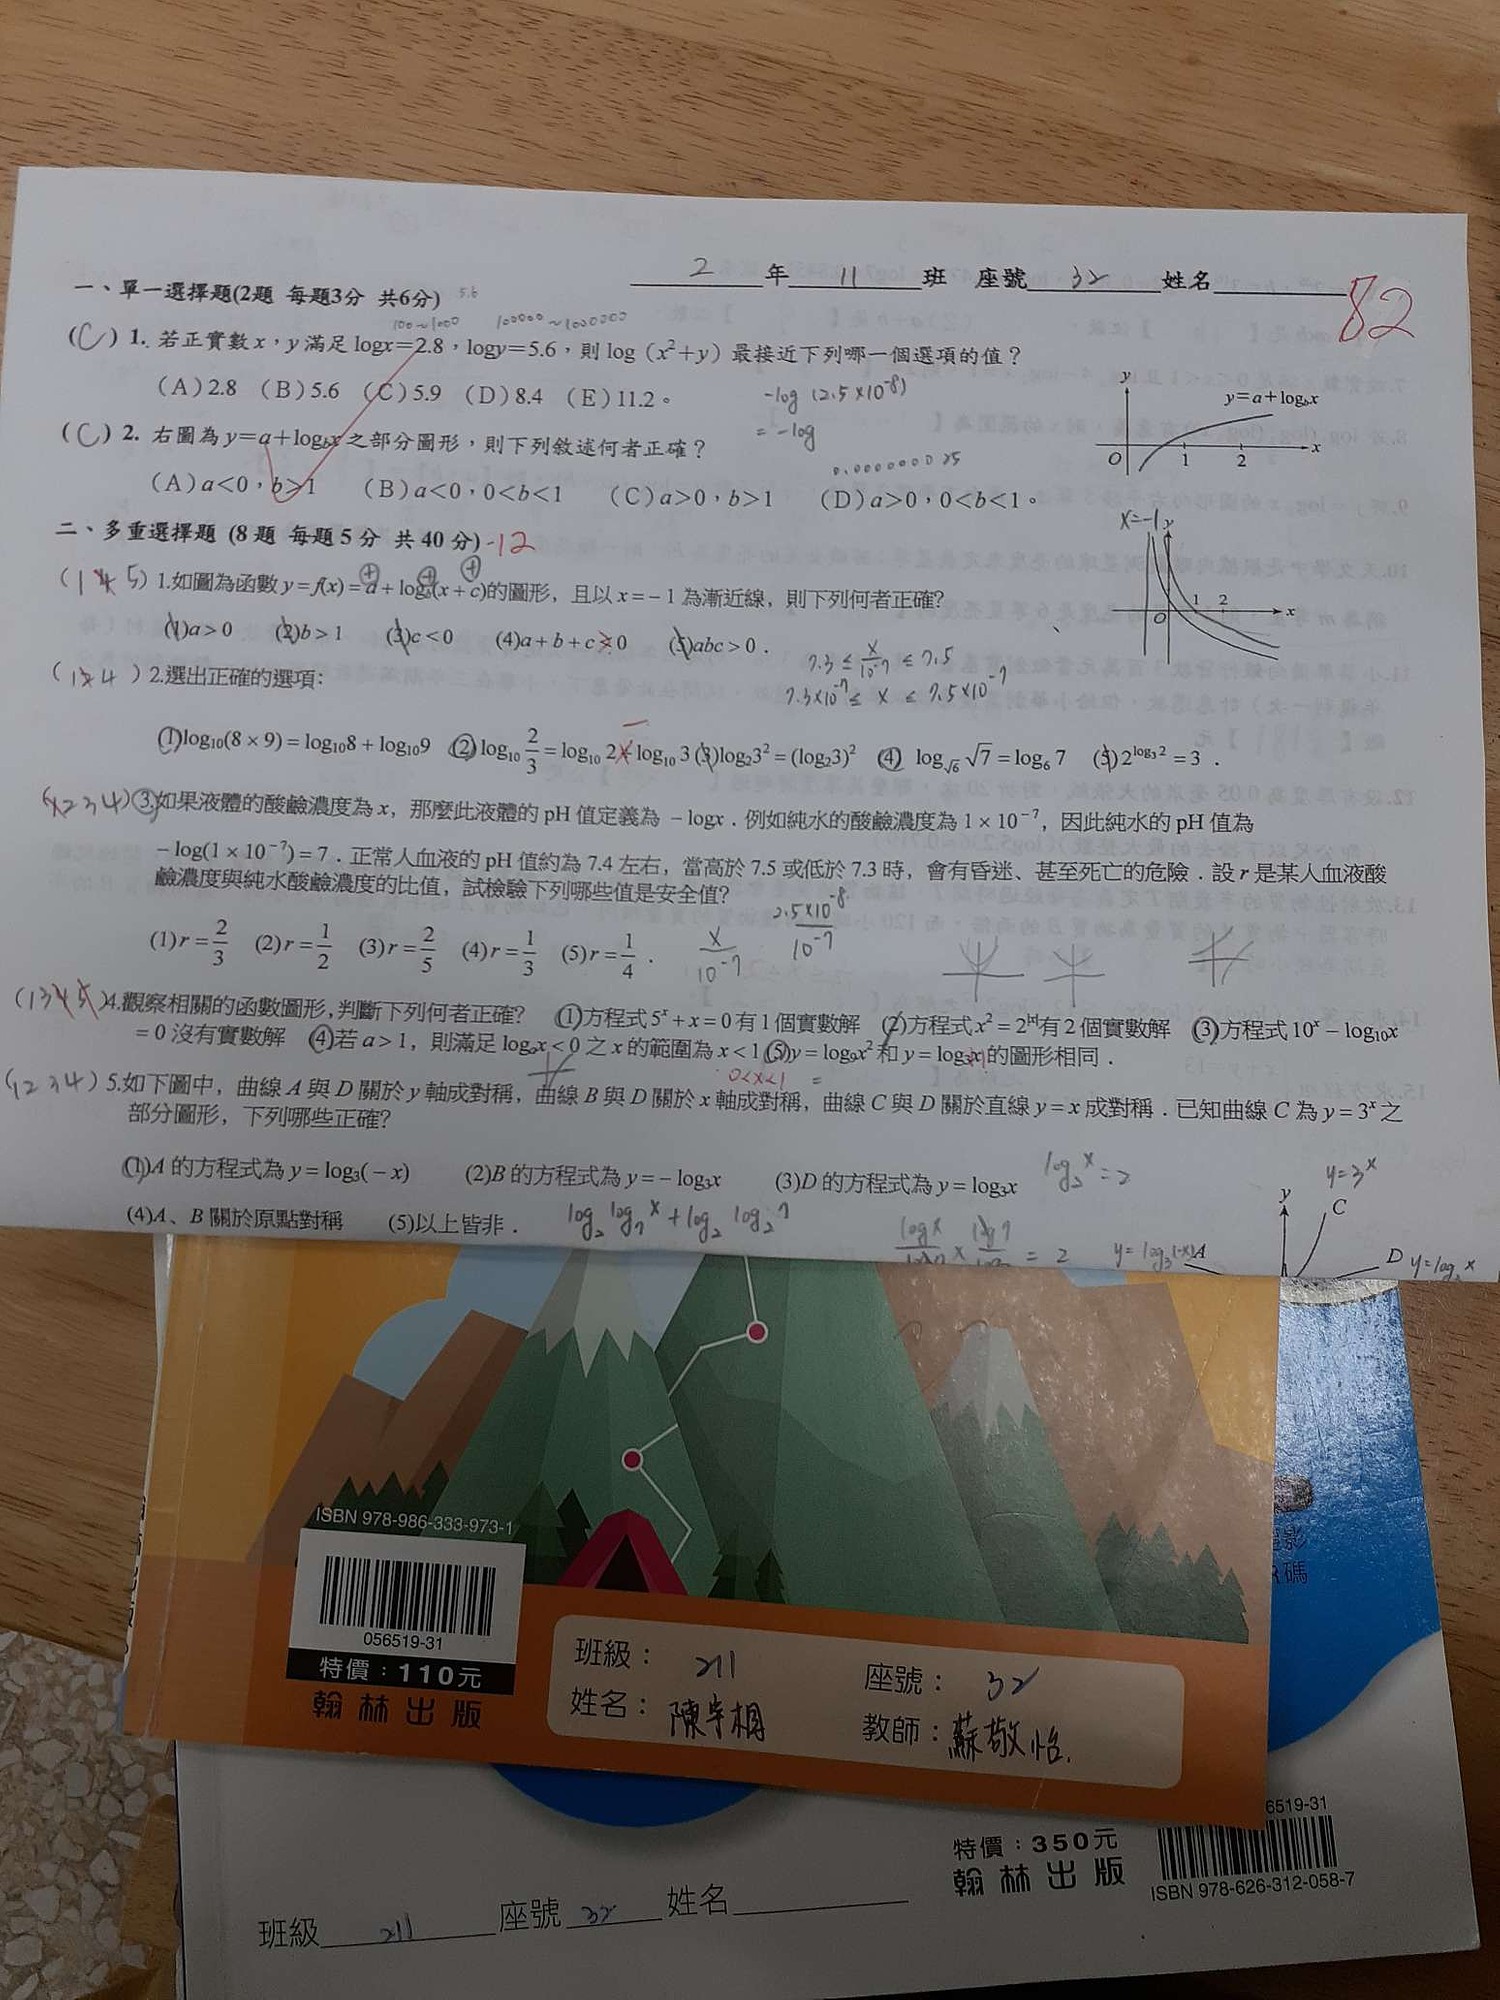 2 年 11 班 座號 32 姓名
82
一、單一選擇題(2題 每題3分 共6分)
5.6
100~1000 100000~1000000
(C) 1. 若正實數 x，y 滿足 logx=2.8，logy=5.6，則 log（x²+y）最接近下列哪一個選項的值？
(A) 2.8 (B) 5.6 (C) 5.9 (D) 8.4 (E) 11.2。
-log (2.5×10⁻⁸)
= -log
y
y=a+log_b x
O 1 2 x
(C) 2. 右圖為 y=a+log_b x 之部分圖形，則下列敘述何者正確？
0.000000025
(A) a<0，b>1 (B) a<0，0<b<1 (C) a>0，b>1 (D) a>0，0<b<1。
二、多重選擇題 (8題 每題5分 共40分) -12
x=-1 y
O 1 2 x
1.如圖為函數 y=f(x)=a+log_b(x+c)的圖形，且以 x=－1 為漸近線，則下列何者正確？
(1)a>0 (2)b>1 (3)c<0 (4)a+b+c>0 (5)abc>0．
7.3 ≤ x/10⁻⁷ ≤ 7.5
7.3×10⁻⁷ ≤ x ≤ 7.5×10⁻⁷
2.選出正確的選項：
(1)log₁₀(8×9)=log₁₀8+log₁₀9 (2)log₁₀ 2/3 = log₁₀ 2 - log₁₀ 3 (3)log₂3²=(log₂3)² (4) log_√6 √7=log₆ 7 (5)2^(log₃2)=3．
(x234) 3.如果液體的酸鹼濃度為 x，那麼此液體的 pH 值定義為 －logx．例如純水的酸鹼濃度為 1×10⁻⁷，因此純水的 pH 值為
－log(1×10⁻⁷)=7．正常人血液的 pH 值約為 7.4 左右，當高於 7.5 或低於 7.3 時，會有昏迷、甚至死亡的危險．設 r 是某人血液酸
鹼濃度與純水酸鹼濃度的比值，試檢驗下列哪些值是安全值？
(1)r=2/3 (2)r=1/2 (3)r=2/5 (4)r=1/3 (5)r=1/4．
x/10⁻⁷ 2.5×10⁻⁸/10⁻⁷
(1345) 4.觀察相關的函數圖形,判斷下列何者正確？ (1)方程式 5ˣ+x=0 有 1 個實數解 (2)方程式 x²=2^|x| 有 2 個實數解 (3)方程式 10ˣ－log₁₀x
=0 沒有實數解 (4)若 a>1，則滿足 logₐx<0 之 x 的範圍為 x<1 (5)y=log₉x² 和 y=log₃|x| 的圖形相同．
0<x<1 =
(1234) 5.如下圖中，曲線 A 與 D 關於 y 軸成對稱，曲線 B 與 D 關於 x 軸成對稱，曲線 C 與 D 關於直線 y=x 成對稱．已知曲線 C 為 y=3ˣ 之
部分圖形，下列哪些正確？
(1)A 的方程式為 y=log₃(－x) (2)B 的方程式為 y=－log₃x (3)D 的方程式為 y=log₃x
log₂ x = 2
(4)A、B 關於原點對稱 (5)以上皆非．
log₂ log₇ x + log₂ log₂ 7
= 2
y=3ˣ
y
C
y=log₃(-x) A
D
ISBN 978-986-333-973-1
056519-31
特價：110元
翰林出版
班級： 211
座號： 32
姓名： 陳宇桐
教師： 蘇敬怡
影
碼
6519-31
特價：350元
翰林出版
ISBN 978-626-312-058-7
班級 211 座號 32 姓名